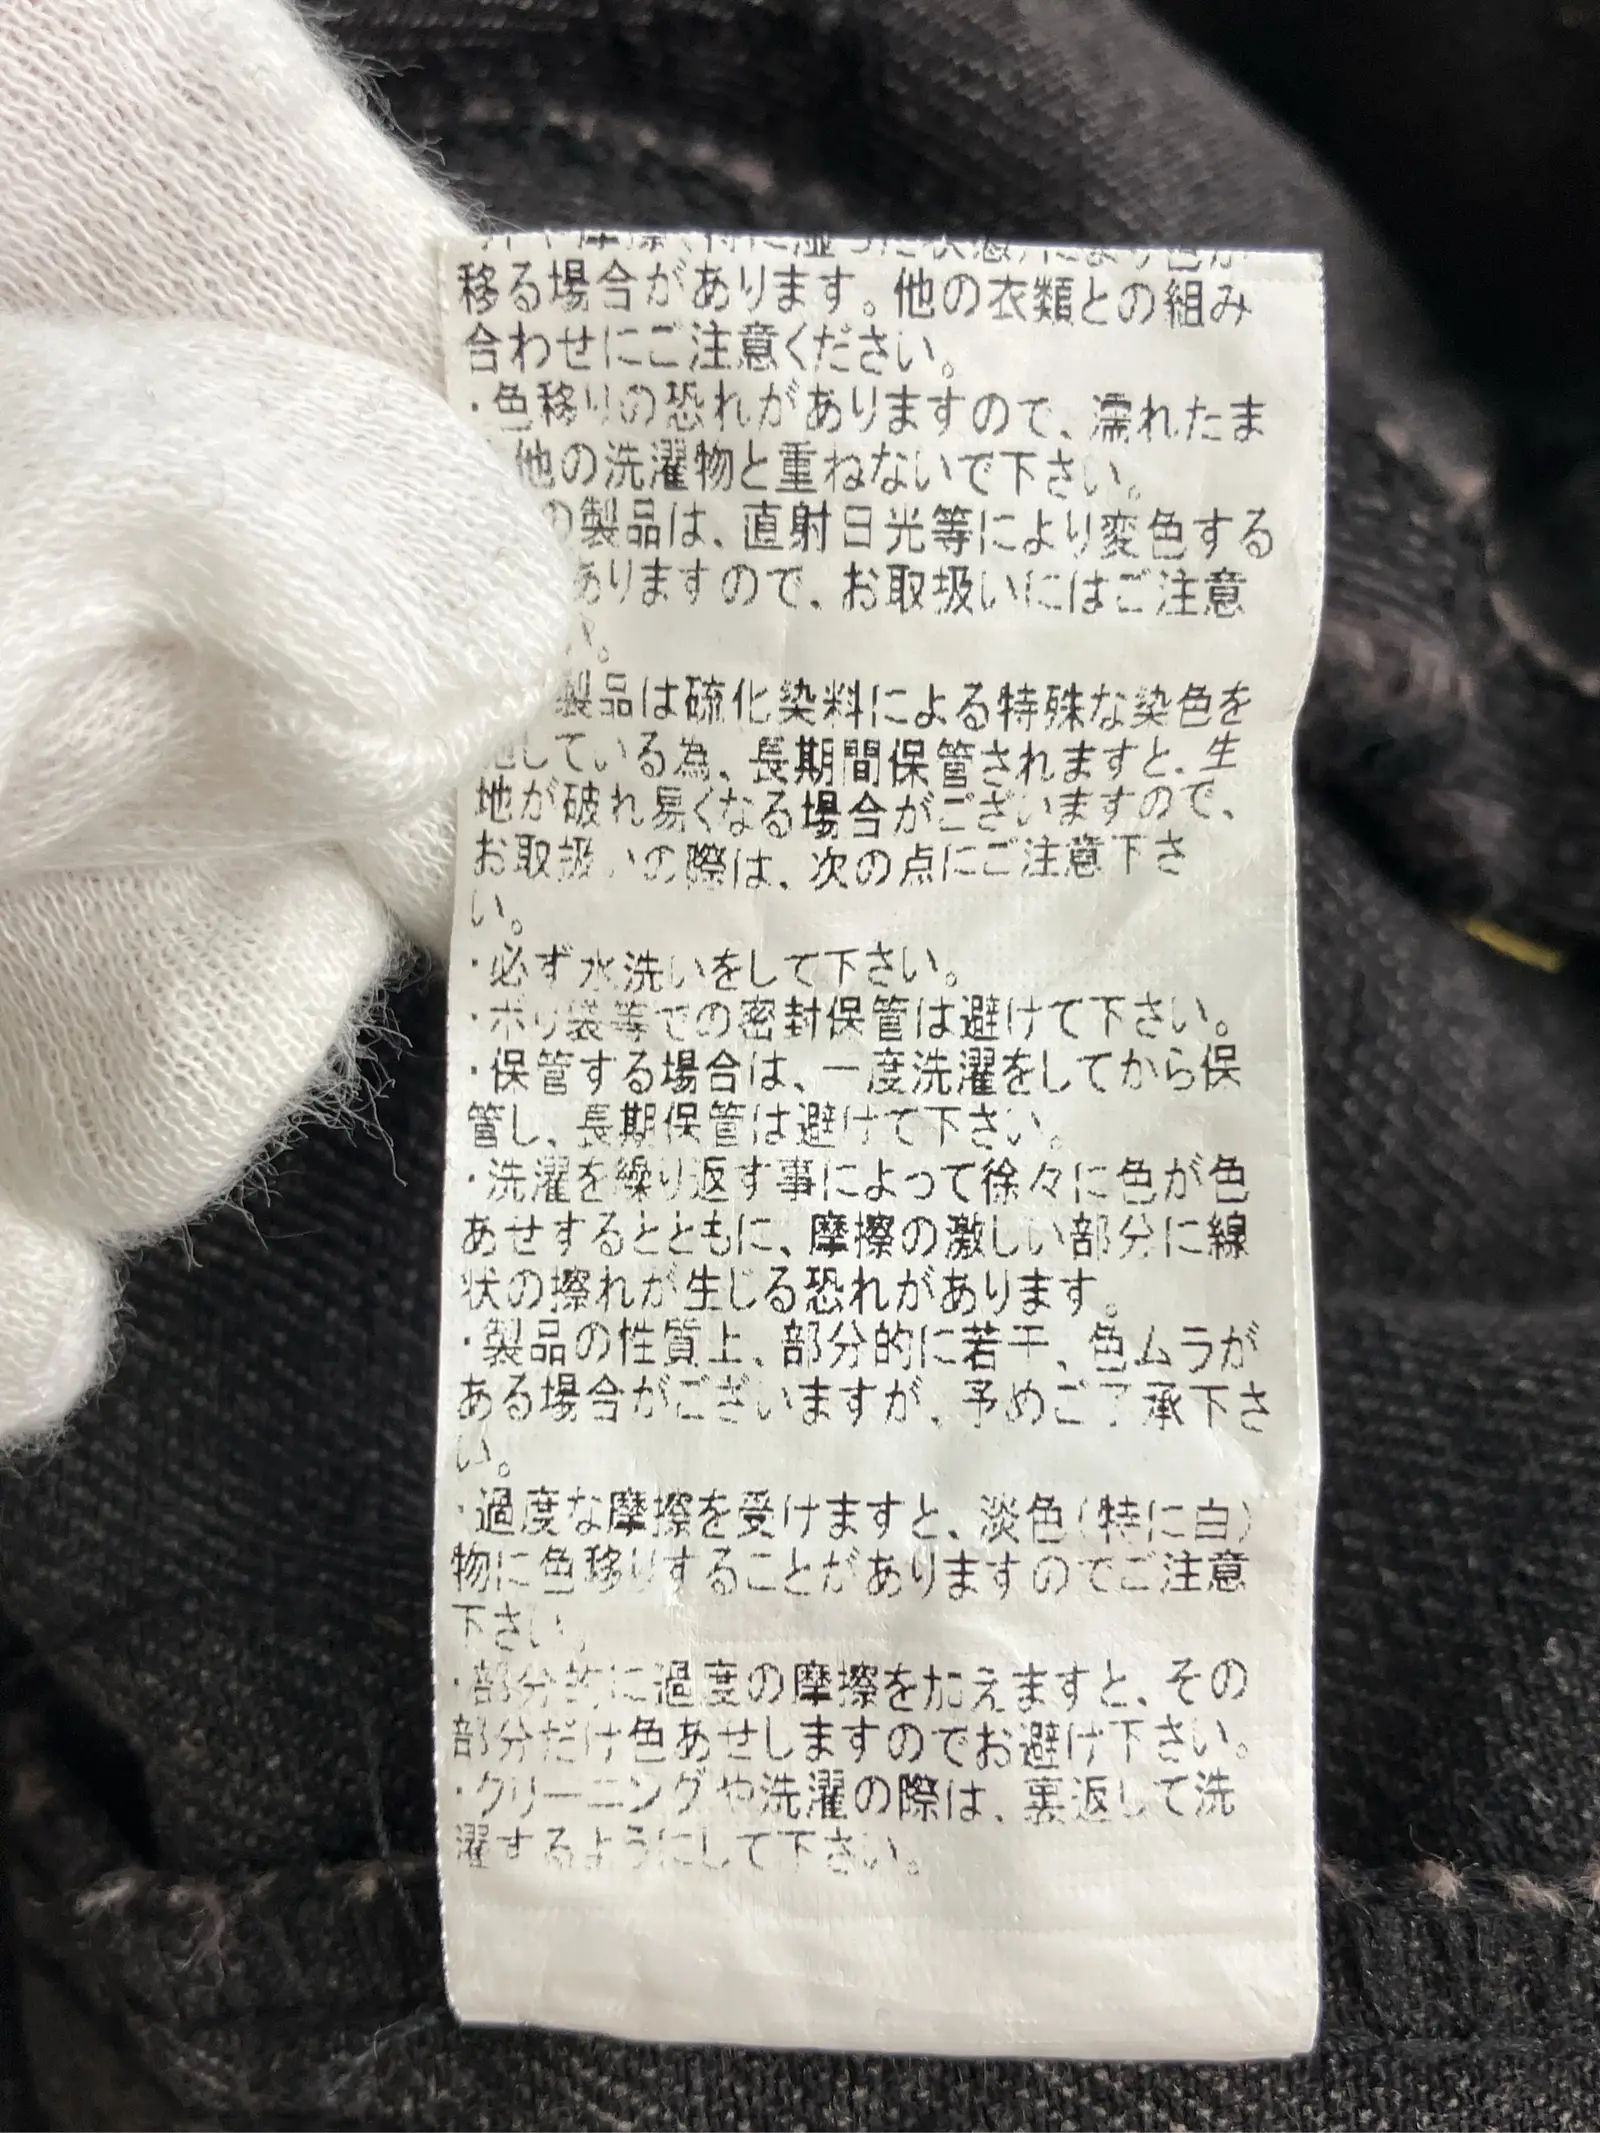 摩擦(特に湿った状態)により色が
移る場合があります。他の衣類との組み
合わせにご注意ください。
・色移りの恐れがありますので、濡れたま
他の洗濯物と重ねないで下さい。
の製品は、直射日光等により変色する
ありますので、お取扱いにはご注意
い。
製品は硫化染料による特殊な染色を
施している為、長期間保管されますと、生
地が破れ易くなる場合がございますので、
お取扱いの際は、次の点にご注意下さ
い。
・必ず水洗いをして下さい。
・ポリ袋等での密封保管は避けて下さい。
・保管する場合は、一度洗濯をしてから保
管し、長期保管は避けて下さい。
・洗濯を繰り返す事によって徐々に色が色
あせするとともに、摩擦の激しい部分に線
状の擦れが生じる恐れがあります。
・製品の性質上、部分的に若干、色ムラが
ある場合がございますが、予めご了承下さ
い。
・過度な摩擦を受けますと、淡色(特に白)
物に色移りすることがありますのでご注意
下さい。
・部分的に過度の摩擦を加えますと、その
部分だけ色あせしますのでお避け下さい。
・クリーニングや洗濯の際は、裏返して洗
濯するようにして下さい。